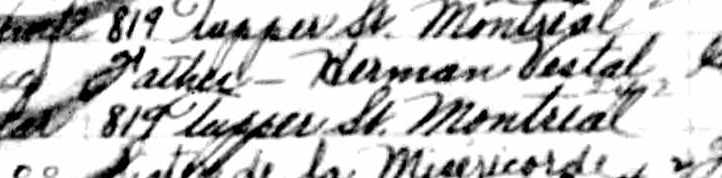 819 Tupper St. Montreal
Father - Herman Vestal
819 Tupper St. Montreal
de la Misericorde